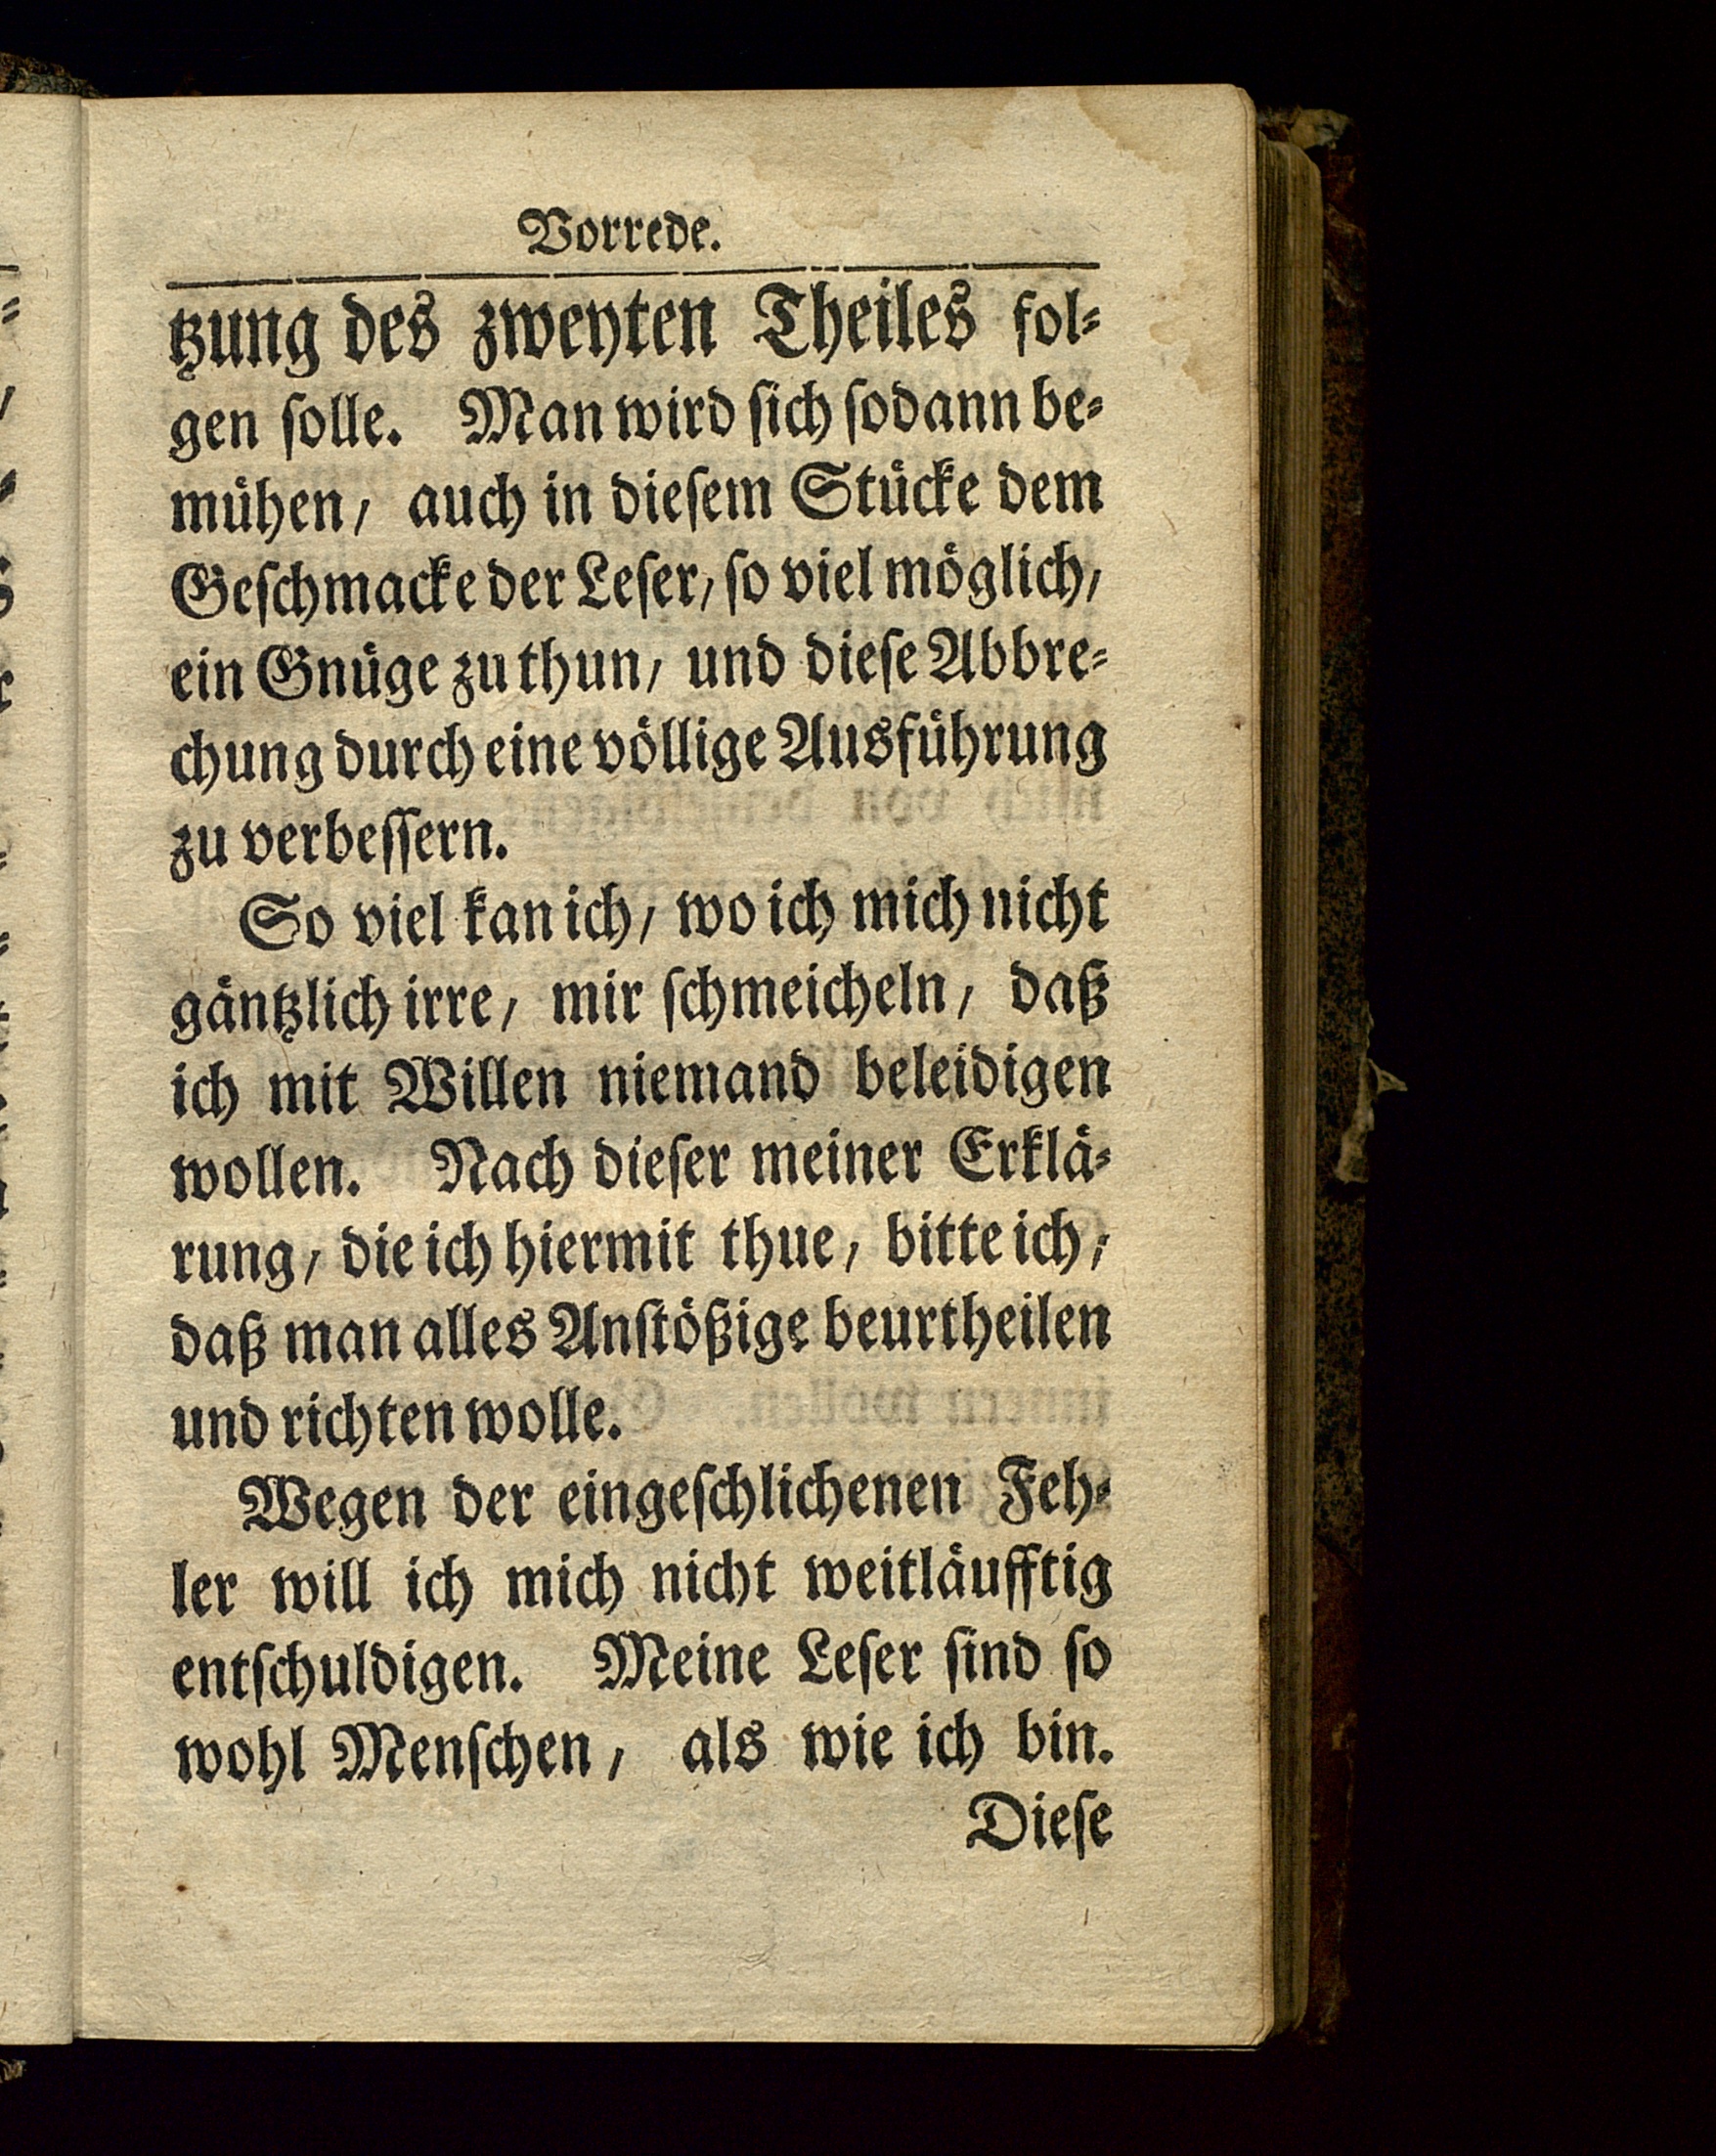 Vorrede.
tzung des zweyten Theiles fol⸗
gen ſolle. Man wird ſich ſodann be⸗
muͤhen/ auch in dieſem Stuͤcke dem
Geſchmacke der Leſer/ ſo viel moͤglich/
ein Gnuͤge zu thun/ und dieſe Abbre⸗
chung durch eine voͤllige Ausfuͤhrung
zu verbeſſern.
So viel kan ich/ wo ich mich nicht
gaͤntzlich irre/ mir ſchmeicheln/ daß
ich mit Willen niemand beleidigen
wollen. Nach dieſer meiner Erklaͤ⸗
rung/ die ich hiermit thue/ bitte ich/
daß man alles Anſtoͤßige beurtheilen
und richten wolle.
Wegen der eingeſchlichenen Feh⸗
ler will ich mich nicht weitlaͤufftig
entſchuldigen. Meine Leſer ſind ſo
wohl Menſchen/ als wie ich bin.
Dieſe